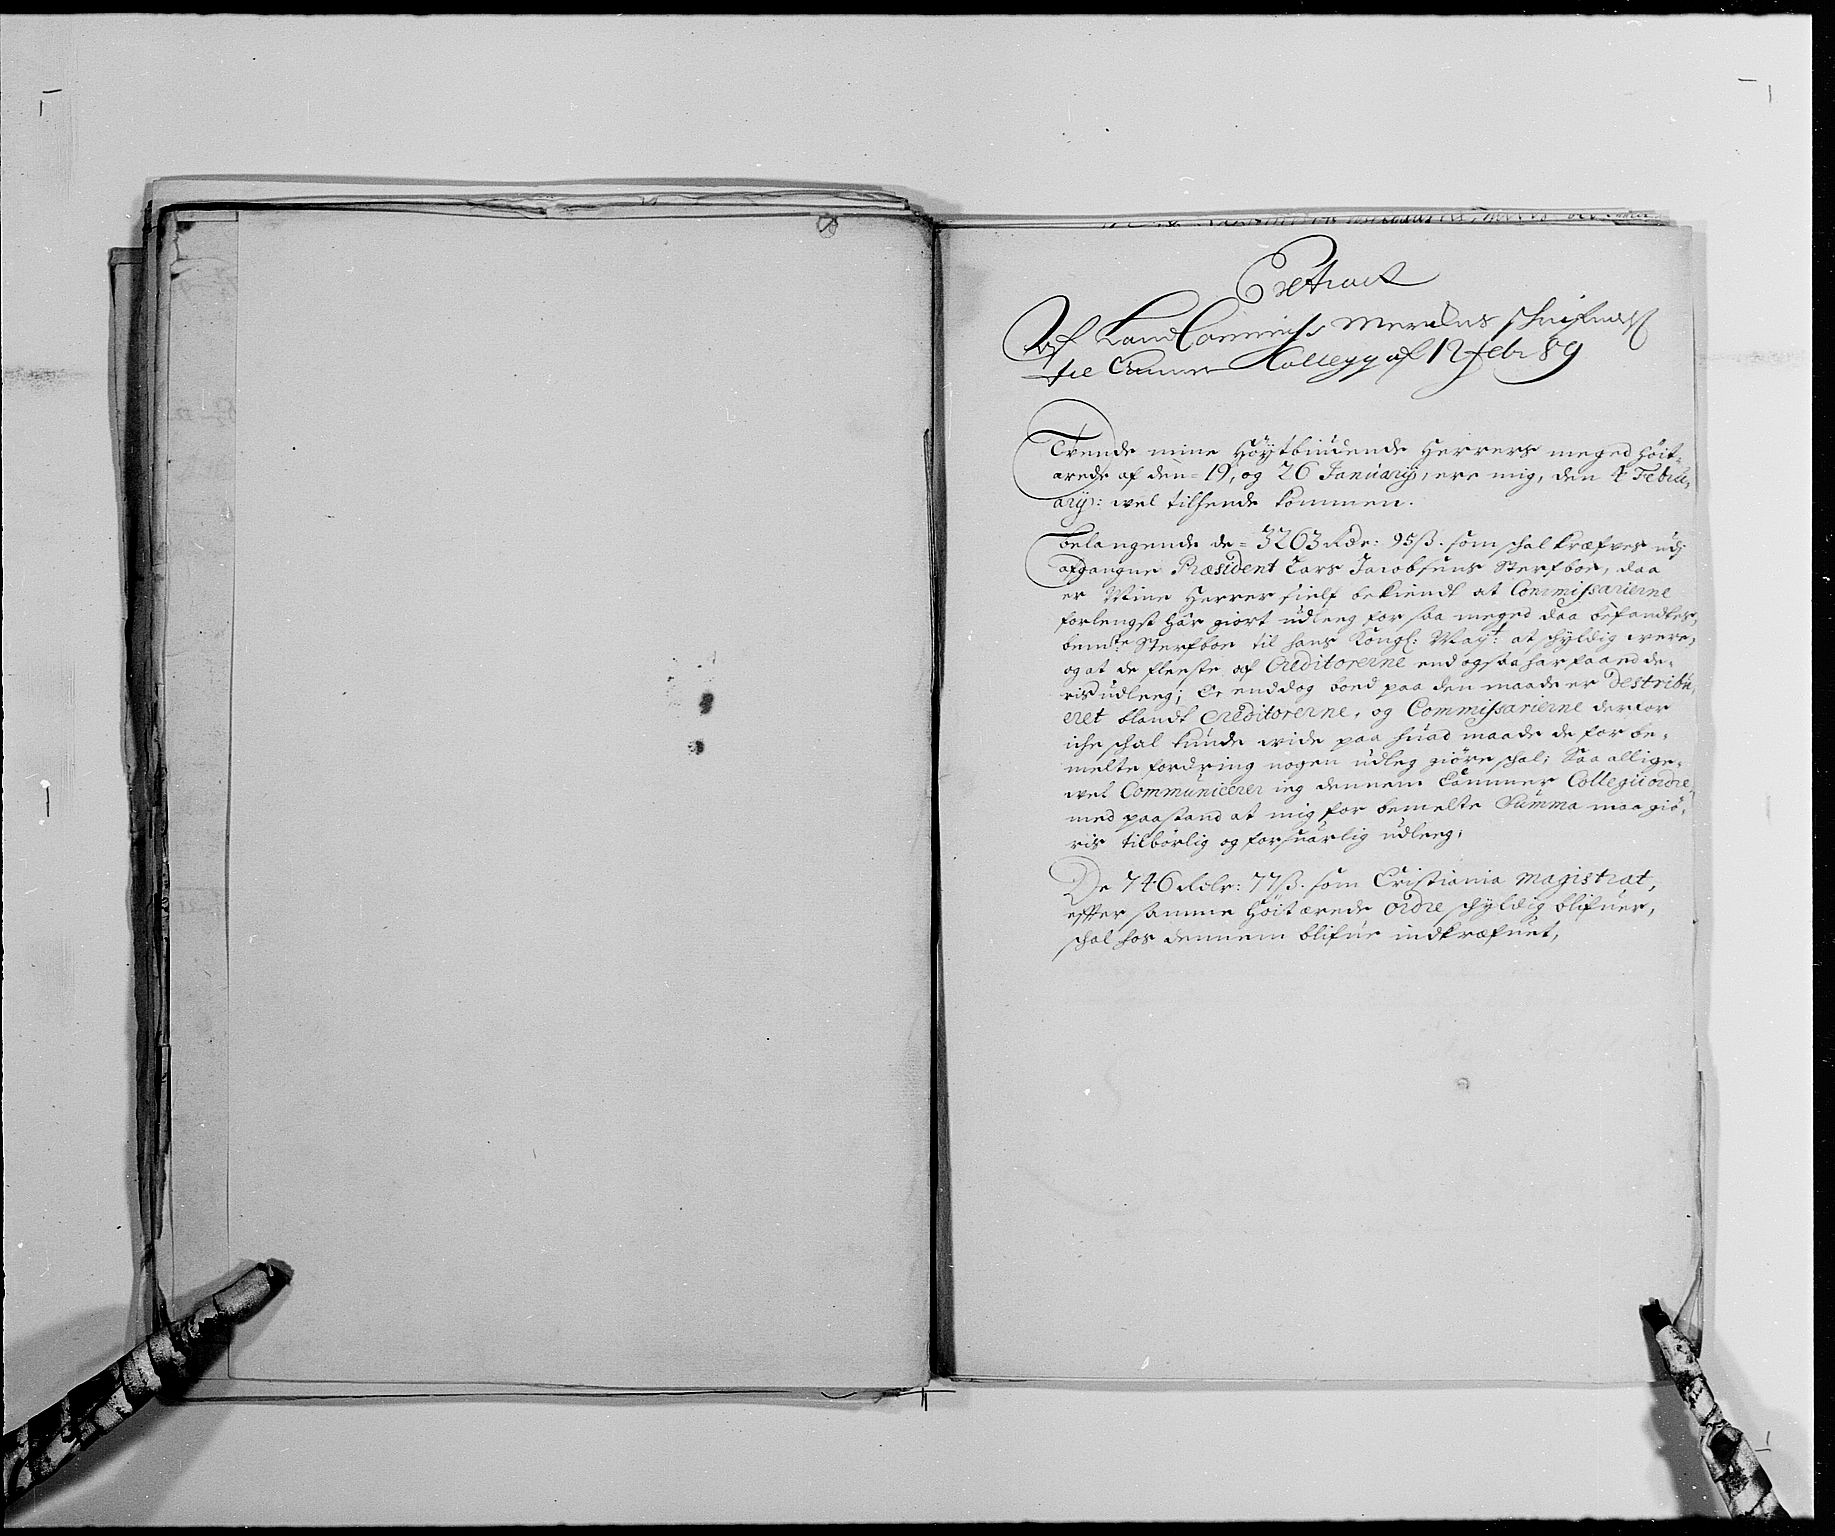 Extract
Af Land Commiss: schrifvelse
til Cammer Collegy af 12 febr 89
Tvende mine Høytbiudende Herrers meged Høit-
ærede af den 19, og 26 Januarij, ere mig, den 4 Febru-
arij: vel tilhende kommen.
Belangende de 3263 Rdr: 95ß. som schal kræfves udj
afgangne Præsident Lars Jacobsens Sterfboe, daa
er Mine Herrer sielf bekiendt at Commissarierne
forlengst har giort udleeg for saa meged daa befandtes,
bemte Sterfboe til hans Kongl: Mayt: at schyldig were,
og at de fleeste af Creditorerne end ogsaa har faaed de-
ris udleeg; Er end dog boed paa den maade er Destribu-
eret blandt Creditorerne, og Commissarierne derfor
iche schal kunde vide paa huad maade de for be-
melte fordring nogen udleg giøre schal; Saa allige-
vel Communicerer ieg dennem Cammer Collegii ordre
med paastand at mig for bemelte Summa maa giø-
ris tilbørlig og forsuarlig udleeg;
De 746 Rdlr: 77ß. som Cristiania Magistrat,
effter samme Høitærede ordre schyldig blifuer,
schal hos dennem blifue indkræfuet,